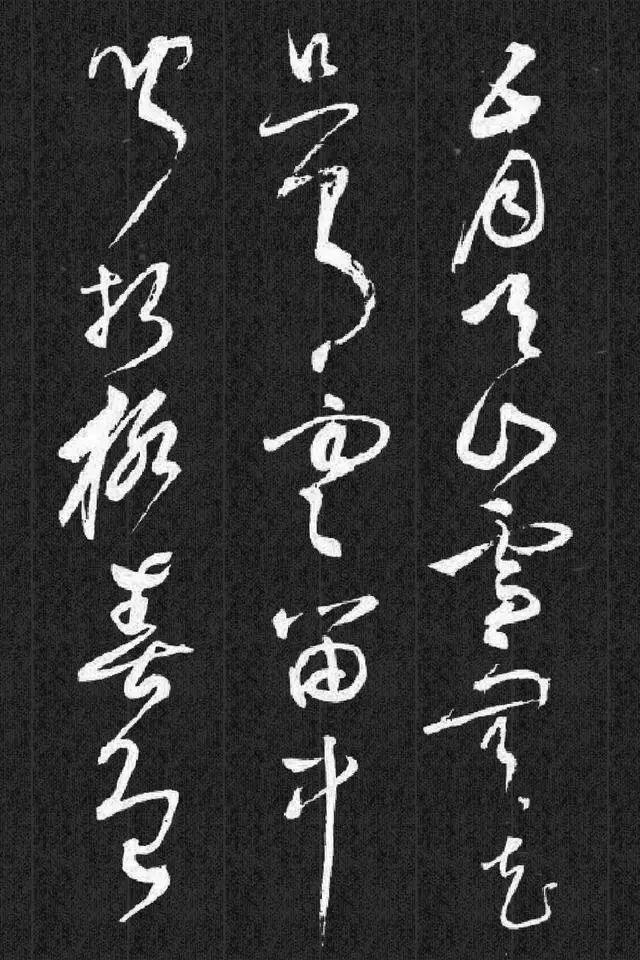 五月天山雪無花
只有寒笛中
聞折柳春色